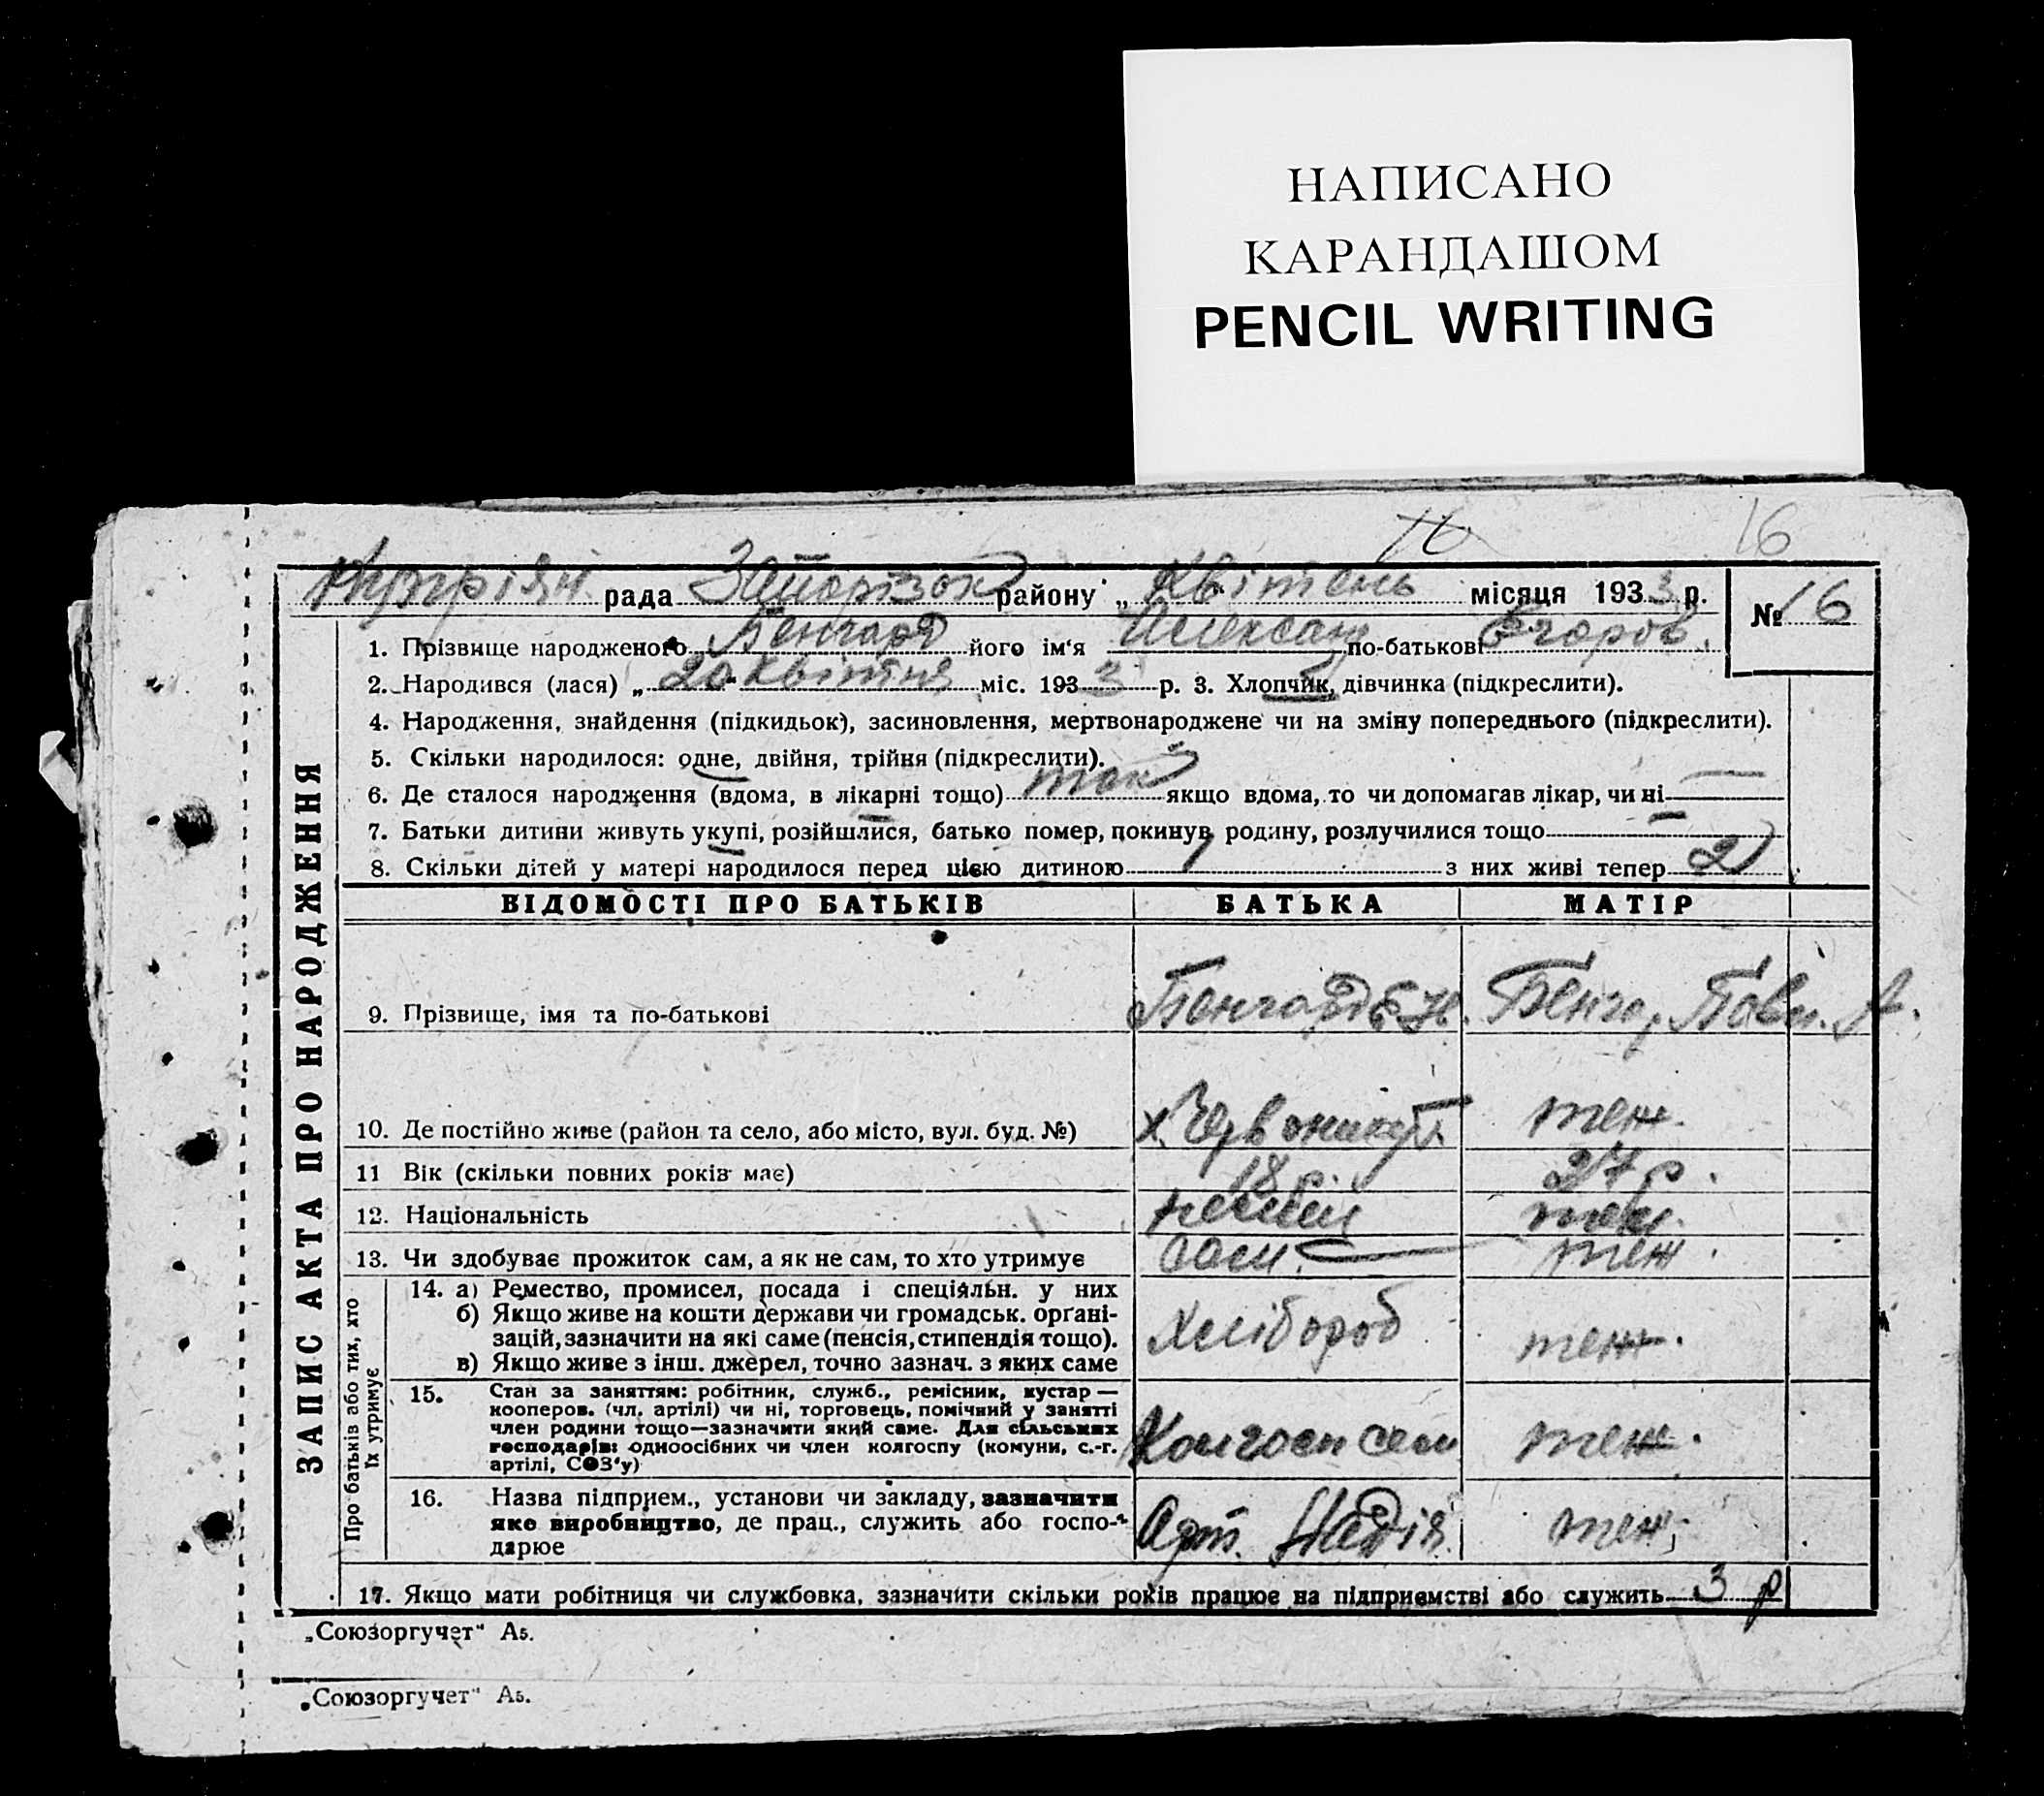 НАПИСАНО
КАРАНДАШОМ
PENCIL WRITING
16 16
Купріян. рада Запорізок району „ Квітень місяця 1933 р. № 16
1. Прізвище народженого Бенгард його ім‘я Алексан по-батькові Егоров.
2. Народився (лася) „ 20 " Квітня міс. 1933 р. 3. Хлопчик, дівчинка (підкреслити).
4. Народження, знайдення (підкидьок), засиновлення, мертвонароджене чи на зміну попереднього (підкреслити).
5. Скільки народилося: одне, двійня, трійня (підкреслити).
6. Де сталося народження (вдома, в лікарні тощо) якщо вдома, то чи допомагав лікар, чи ні —
7. Батьки дитини живуть укупі, розійшлися, батько помер, покинув родину, розлучилися тощо
8. Скільки дітей у матері народилося перед цією дитиною з них живі тепер 2
ЗАПИС АКТА ПРО НАРОДЖЕННЯ
ВІДОМОСТІ ПРО БАТЬКІВ БАТЬКА МАТІР
9. Прізвище, імя та по-батькові Бенгард Бенга,
10. Де постійно живе (район та село, або місто, вул. буд. №) теж.
11 Вік (скільки повних років має) 18 р. 27 р.
12. Національність немец
13. Чи здобуває прожиток сам, а як не сам, то хто утримує сам. теж.
Про батьків або тих, хто
їх утримує
14. а) Ремество, промисел, посада і спеціяльн. у них
б) Якщо живе на кошти держави чи громадськ. орґані-
зацій, зазначити на які саме (пенсія, стипендія тощо).
в) Якщо живе з інш. джерел, точно зазнач. з яких саме
Хлібороб теж.
15. Стан за заняттям: робітник, служб., ремісник, кустар —
кооперов. (чл. артілі) чи ні, торговець, помічний у занятті
член родини тощо—зазначити який саме. Для сільських
господарів: одноосібних чи член колгоспу (комуни, с.-г.
артілі, СОЗ‘у)
Колгосп теж.
16. Назва підприєм., установи чи закладу, зазначити
яке виробництво, де прац., служить або госпо-
дарює
Арт. Надія. теж,
17. Якщо мати робітниця чи службовка, зазначити скільки років працює на підприємстві або служить 3 р
„Союзоргучет" А5.
„Союзоргучет" А5.